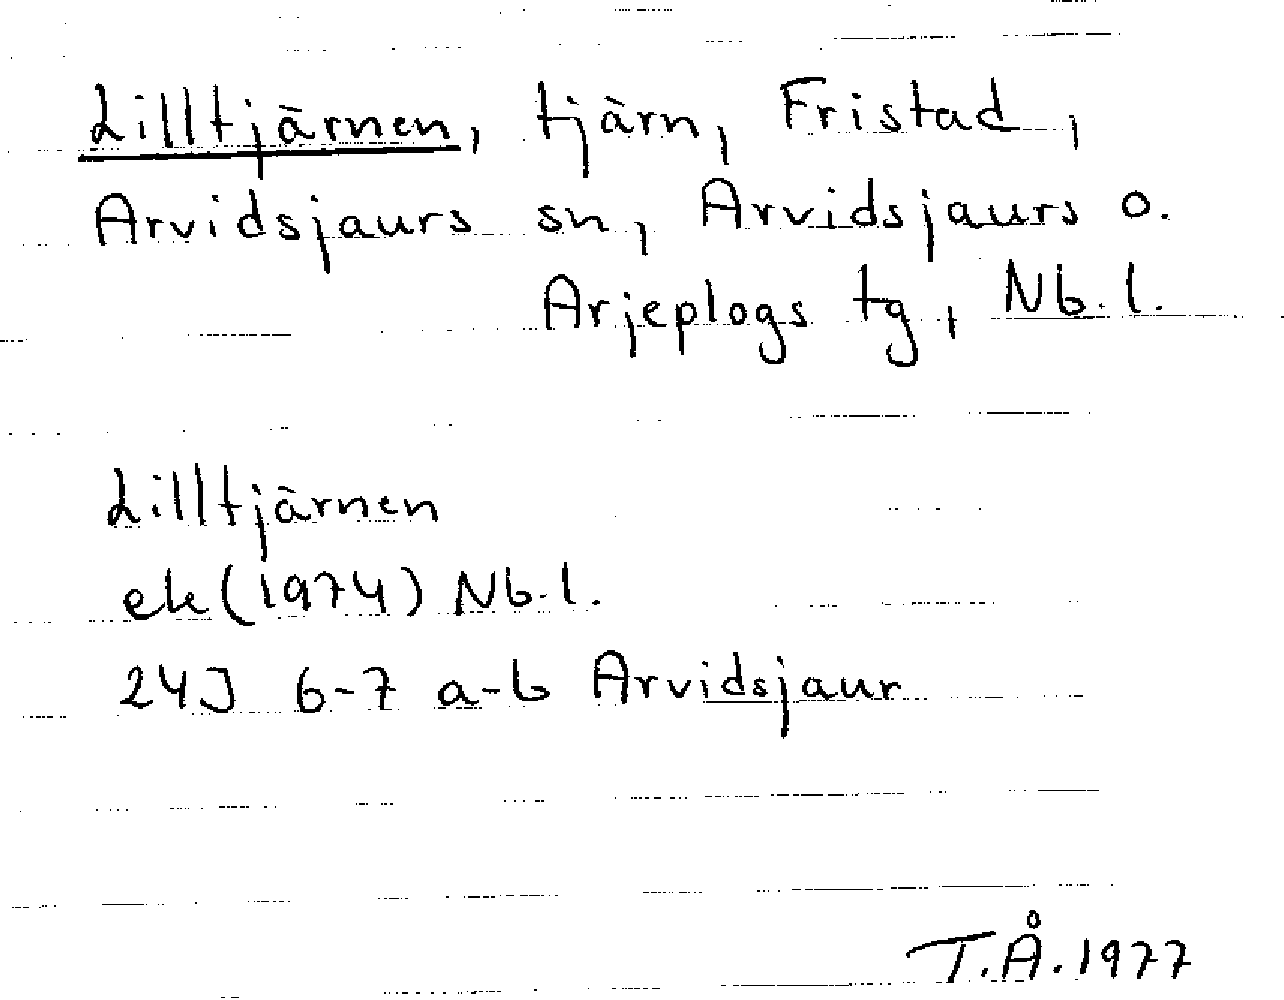 Lilltjärnen, tjärn, Fristad,
Arvidsjaurs sn, Arvidsjaurs o.
Arjeplogs tg, Nb.l.
Lilltjärnen
ek (1974) Nb.l.
24J 6-7 a-b Arvidsjaur
T.Å. 1977